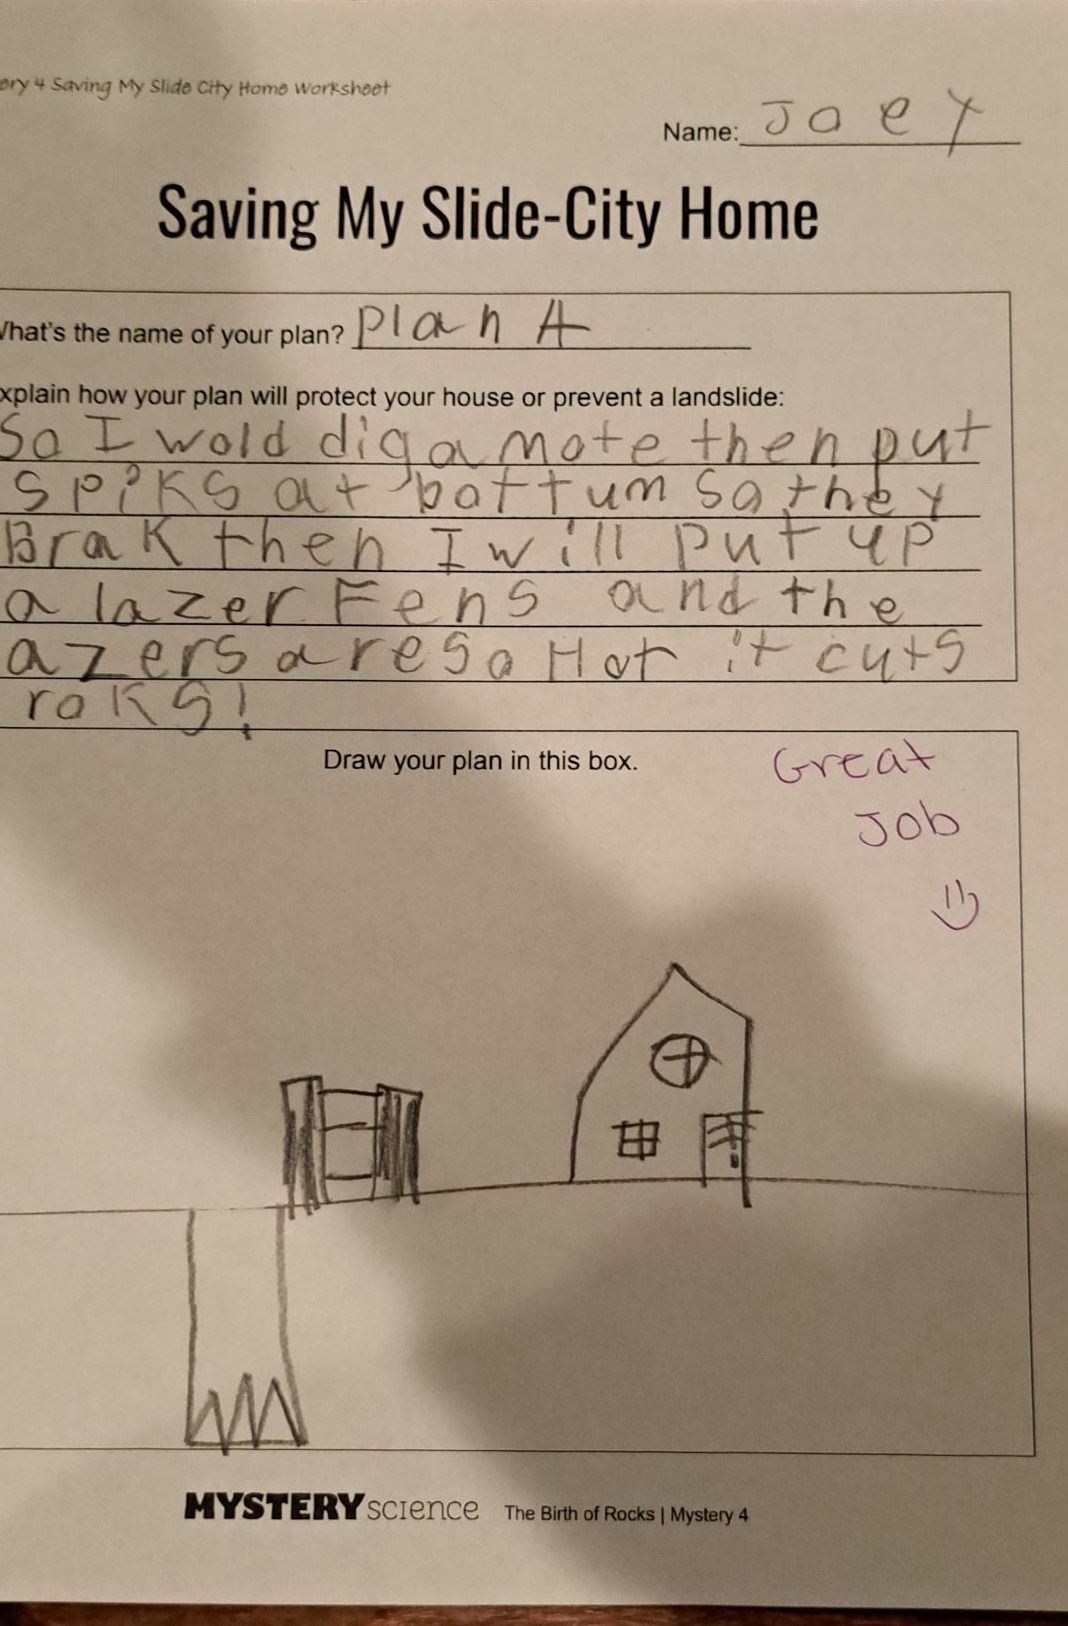 ery 4 Saving My Slide City Home Worksheet
Name: Joey
Saving My Slide-City Home
What's the name of your plan? Plan A
xplain how your plan will protect your house or prevent a landslide:
So I wold dig a mote then put
spiks at bottum so they
Brak then I will put up
a lazer Fens and the
azers are so Hot it cuts
roks!
Draw your plan in this box.
Great
Job
MYSTERY science The Birth of Rocks | Mystery 4